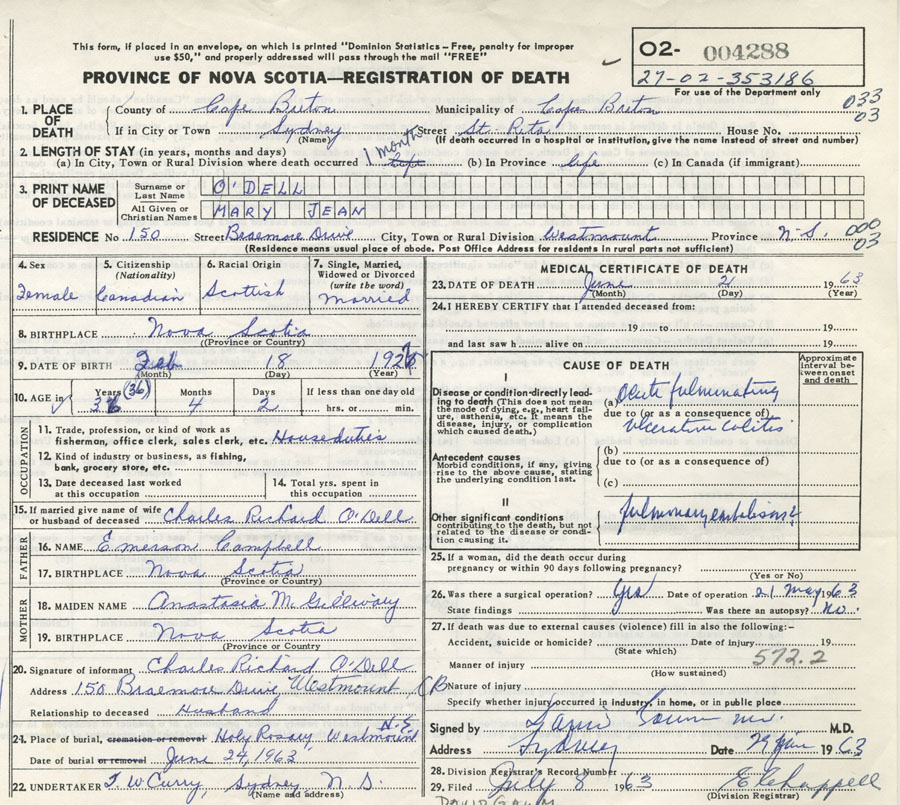 This form, if placed in an envelope, on which is printed "Dominion Statistics – Free, penalty for improper
use $50," and properly addressed will pass through the mail "FREE"
PROVINCE OF NOVA SCOTIA—REGISTRATION OF DEATH
02- 004288
27-02-353186
For use of the Department only
1. PLACE OF DEATH
County of Cape Breton Municipality of Cape Breton 033 03
If in City or Town Sydney Street St. Rita House No.
(Name) (If death occurred in a hospital or institution, give the name instead of street and number)
2. LENGTH OF STAY (in years, months and days)
(a) In City, Town or Rural Division where death occurred 1 month (b) In Province life (c) In Canada (if immigrant)
3. PRINT NAME OF DECEASED
Surname or Last Name O'DELL
All Given or Christian Names MARY JEAN
RESIDENCE No 150 Street Braemore Drive City, Town or Rural Division Westmount Province N.S. 000 03
(Residence means usual place of abode. Post Office Address for residents in rural parts not sufficient)
4. Sex Female
5. Citizenship (Nationality) Canadian
6. Racial Origin Scottish
7. Single, Married, Widowed or Divorced (write the word) married
8. BIRTHPLACE Nova Scotia
(Province or Country)
9. DATE OF BIRTH Feb 18 192
(Month) (Day) (Year)
10. AGE in Years (36) Months 4 Days 2 If less than one day old hrs. or min.
OCCUPATION
11. Trade, profession, or kind of work as
fisherman, office clerk, sales clerk, etc. Houseduties
12. Kind of industry or business, as fishing,
bank, grocery store, etc.
13. Date deceased last worked at this occupation
14. Total yrs. spent in this occupation
15. If married give name of wife
or husband of deceased Charles Richard O'Dell
FATHER
16. NAME Emerson Campbell
17. BIRTHPLACE Nova Scotia
(Province or Country)
MOTHER
18. MAIDEN NAME Anastasia McGillivary
19. BIRTHPLACE Nova Scotia
(Province or Country)
20. Signature of informant Charles Richard O'Dell
Address 150 Braemore Drive, Westmount, CB
Relationship to deceased Husband
21. Place of burial, cremation or removal Holy Rosary, Westmount N.S.
Date of burial or removal June 24, 1963
22. UNDERTAKER T. W Curry, Sydney N S.
(Name and address)
MEDICAL CERTIFICATE OF DEATH
23. DATE OF DEATH June 21 1963
(Month) (Day) (Year)
24. I HEREBY CERTIFY that I attended deceased from:
19 to 19
and last saw h alive on 19
CAUSE OF DEATH
Approximate interval between onset and death
I
Disease or condition directly leading to death (This does not mean
the mode of dying, e.g., heart failure, asthenia, etc. It means the
disease, injury, or complication which caused death.)
(a) Acute fulminating
due to (or as a consequence of)
Ulcerative Colitis
Antecedent causes
Morbid conditions, if any, giving rise to the above cause, stating
the underlying condition last.
(b)
due to (or as a consequence of)
(c)
II
Other significant conditions
contributing to the death, but not related to the disease or condition causing it.
pulmonary embolism?
25. If a woman, did the death occur during
pregnancy or within 90 days following pregnancy?
(Yes or No)
26. Was there a surgical operation? Yes Date of operation 21 May 1963
State findings Was there an autopsy? No.
27. If death was due to external causes (violence) fill in also the following:–
Accident, suicide or homicide? Date of injury 19
(State which)
572.2
Manner of injury
(How sustained)
Nature of injury
Specify whether injury occurred in industry, in home, or in public place
Signed by M.D.
Address Sydney Date 1963
28. Division Registrar's Record Number
29. Filed July 8 1963 E Chappell
(Division Registrar)